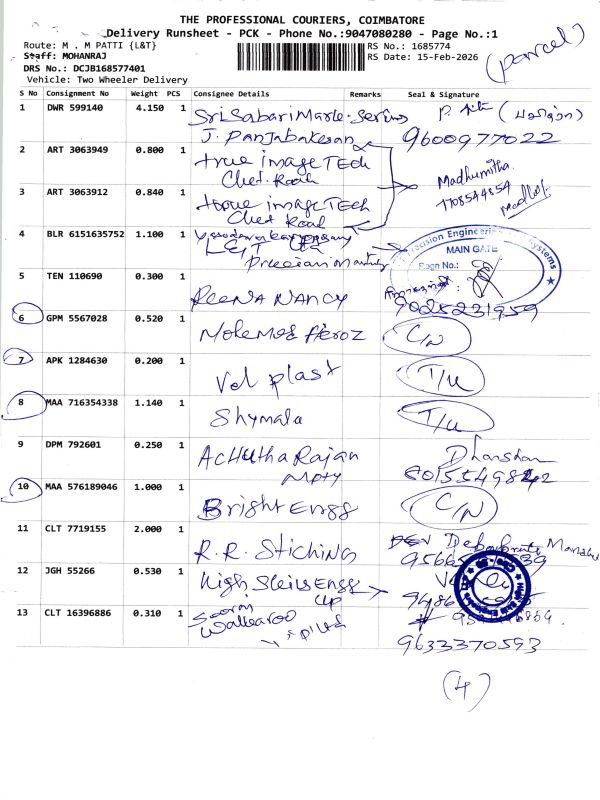 THE PROFESSIONAL COURIERS, COIMBATORE
Delivery Runsheet - PCK - Phone No.:9047080280 - Page No.:1
(parcel)
Route: M . M PATTI {L&T}
RS No.: 1685774
Staff: MOHANRAJ
RS Date: 15-Feb-2026
DRS No.: DCJB168577401
Vehicle: Two Wheeler Delivery
S No Consignment No Weight PCS Consignee Details Remarks Seal & Signature
1 DWR 599140 4.150 1 Sri Sabari
J. Panjabakesan 9600977022
2 ART 3063949 0.800 1 true image TECh
Chet. Road
Madhumitha
3 ART 3063912 0.840 1 true image TECh
Chet Road
4 BLR 6151635752 1.100 1
Precision Engineering Systems
MAIN GATE
Regn No.:
5 TEN 110690 0.300 1 REENA NANCY
9025231959
6 GPM 5567028 0.520 1 Mohemed Feroz C/N
7 APK 1284630 0.200 1 Vel plast T/U
8 MAA 716354338 1.140 1 Shymala T/U
9 DPM 792601 0.250 1 Achutha Rajan Dharshan
Mpty
10 MAA 576189046 1.000 1 Bright Engg C/N
11 CLT 7719155 2.000 1 R.R. Stiching
12 JGH 55266 0.530 1 High Engg
13 CLT 16396886 0.310 1 Walkaroo
9633370593
(4)